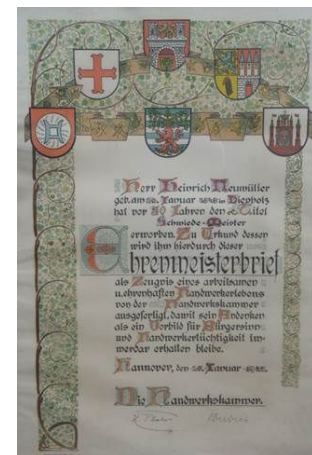 Herr Heinrich Neumüller
geb. am Januar in Diepholz
hat vor 50 Jahren den Titel
Schmiede-Meister
erworben. Zu Urkund dessen
wird ihm hierdurch dieser
Ehrenmeisterbrief
als Zeugnis eines arbeitsamen
u. ehrenhaften Handwerkerlebens
von der Handwerkskammer
ausgefertigt, damit sein Andenken
als ein Vorbild für Bürgersinn
und Handwerkertüchtigkeit im-
merdar erhalten bleibe.
Hannover, den Januar
Die Handwerkskammer.